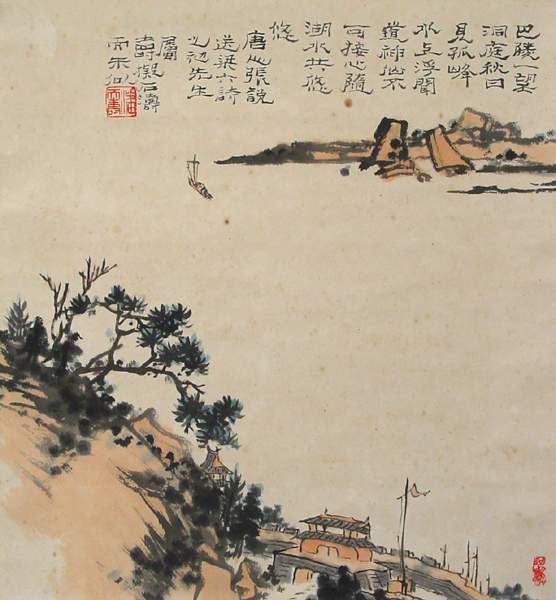 巴陵一望
洞庭秋日
見孤峰
水上浮聞
道神仙不
可接心隨
湖水共悠
悠
唐人張說
送梁六詩
之初先生
屬
壽擬石濤